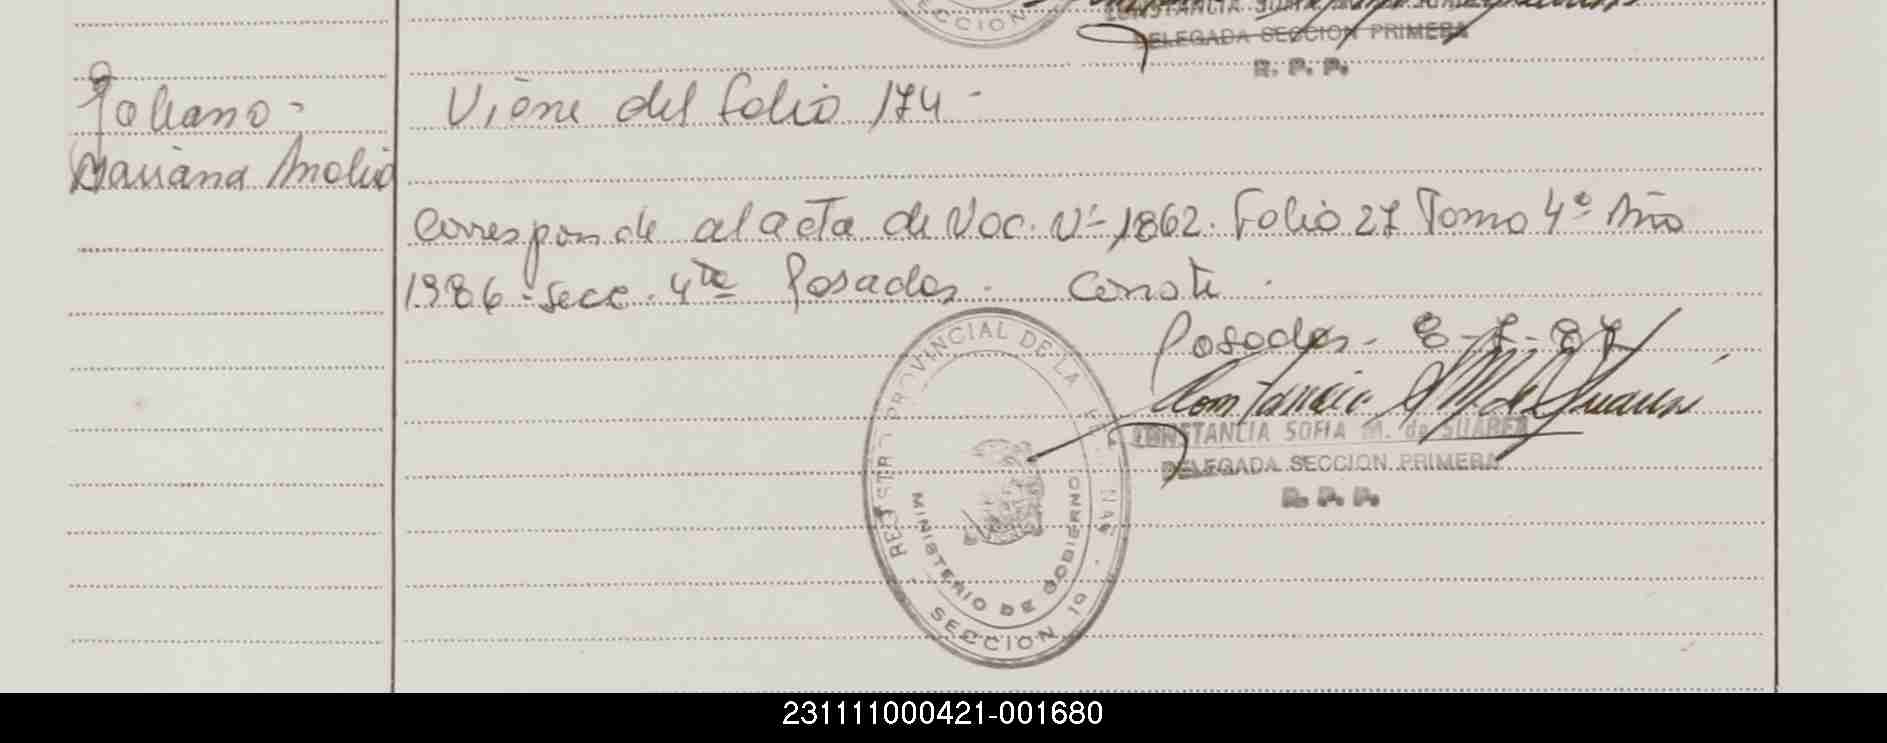 SECCION
CONSTANCIA SOFIA
DELEGADA SECCION PRIMERA
R. P. P.
Galiano -
Mariana Analia
Viene del folio 174 -
Corresponde al acta de Nac. Nº 1862. Folio 27 Tomo 4º Año
1986 - Secc. 4ta Posadas. Conste.
Posadas - 8-7-87
Constancia S M de Suarez
CONSTANCIA SOFIA M. de SUAREZ
DELEGADA SECCION PRIMERA
R. P. P.
REGISTRO PROVINCIAL DE LAS PERSONAS
MINISTERIO DE GOBIERNO
SECCION 1º
231111000421-001680